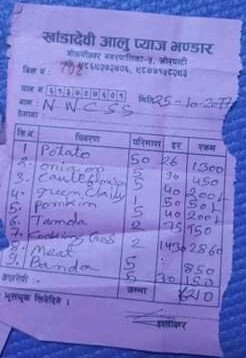 खांडादेवी आलु प्याज भण्डार
गोकर्णेश्वर नगरपालिका-५, जोरपाटी
बिल नं. 702
पान नं. ६१३७०७६०१
नाम : N.W.C.S.S मिति 25-10-2077
ठेगाना
सि.नं. विवरण परिमाण दर रकम
1. Potato 50 26 1300
2. Onion 5 450
3. 5 30
4. green Chilly 40 200/-
5. Pomkin 1 50 50/-
6. Tamda 5 40 200/-
7. Cooking Gas 2 75 150
8. Meat 2 1430 2860
9. Banda 5 850
5 30 150
अक्षरेपी : जम्मा 6210
भूलचूक लिनेदिने ।
हस्ताक्षर